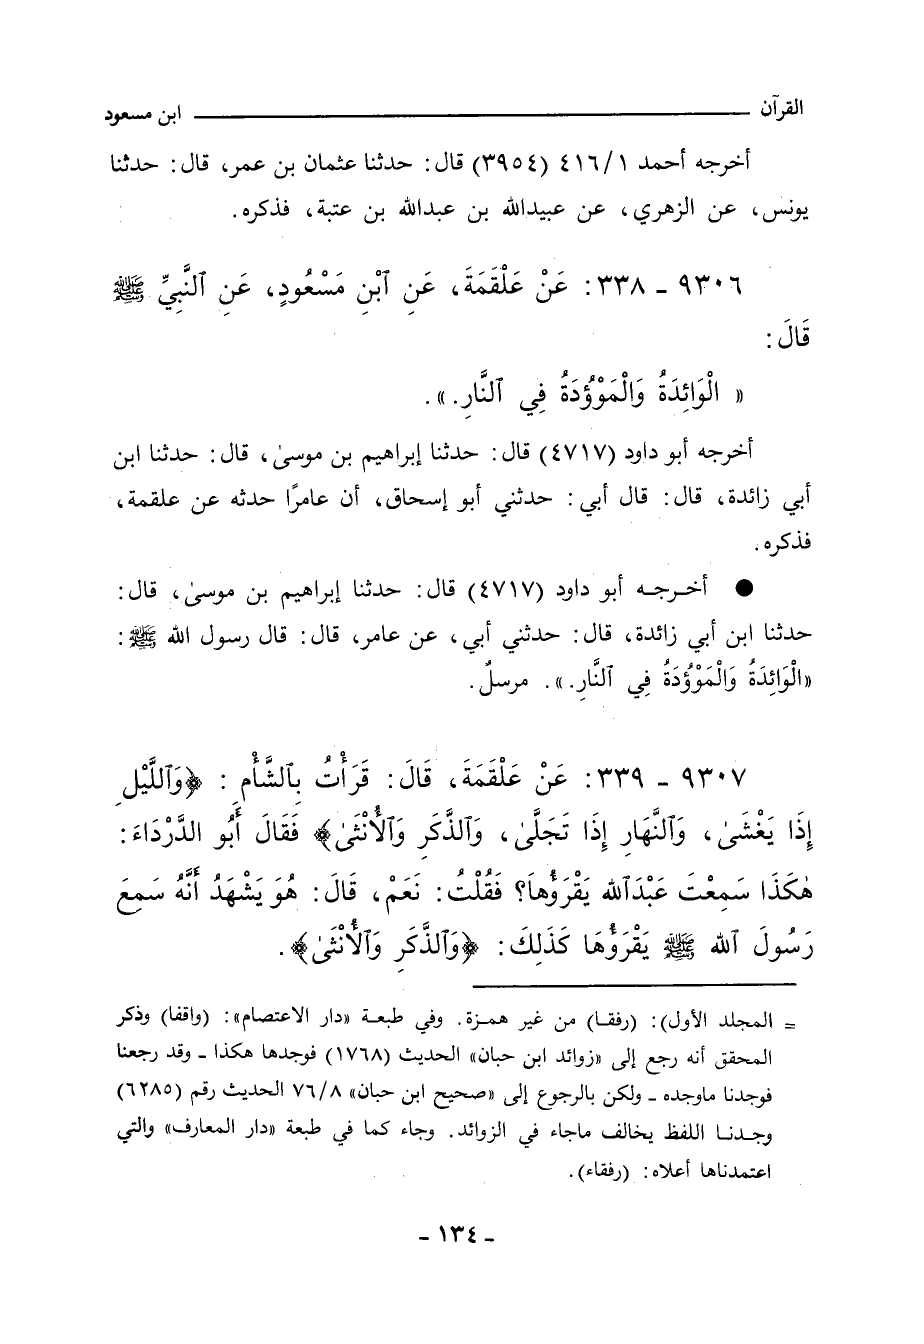 القرآن ــــــــــــــــــــــــ ابن مسعود
أخرجه أحمد ٤١٦/١ (٣٩٥٤) قال: حدثنا عثمان بن عمر، قال: حدثنا
يونس، عن الزهري، عن عبيدالله بن عبدالله بن عتبة، فذكره.
٩٣٠٦ ـ ٣٣٨: عَنْ عَلْقَمَةَ، عَنِ ٱبْنِ مَسْعُودٍ، عَنِ ٱلنَّبِيِّ ﷺ
قَالَ:
« الْوَائِدَةُ وَالْمَوْؤُدَةُ فِي ٱلنَّارِ. ».
أخرجه أبو داود (٤٧١٧) قال: حدثنا إبراهيم بن موسىٰ، قال: حدثنا ابن
أبي زائدة، قال: قال أبي: حدثني أبو إسحاق، أن عامرًا حدثه عن علقمة،
فذكره.
● أخـرجـه أبو داود (٤٧١٧) قال: حدثنا إبراهيم بن موسىٰ، قال:
حدثنا ابن أبي زائدة، قال: حدثني أبي، عن عامر، قال: قال رسول الله ﷺ:
«الْوَائِدَةُ وَالْمَوْؤُدَةُ فِي ٱلنَّارِ. ». مرسلٌ.
٩٣٠٧ ـ ٣٣٩: عَنْ عَلْقَمَةَ، قَالَ: قَرَأْتُ بِٱلشَّأْمِ: ﴿وَٱللَّيْلِ
إِذَا يَغْشَىٰ، وَٱلنَّهَارِ إِذَا تَجَلَّىٰ، وَٱلذَّكَرِ وَٱلأُنْثَىٰ﴾ فَقَالَ أَبُو الدَّرْدَاءَ:
هٰكَذَا سَمِعْتَ عَبْدَٱلله يَقْرَؤُهَا؟ فَقُلْتُ: نَعَمْ، قَالَ: هُوَ يَشْهَدُ أَنَّهُ سَمِعَ
رَسُولَ ٱلله ﷺ يَقْرَؤُهَا كَذَلِكَ: ﴿وَٱلذَّكَرِ وَٱلأُنْثَىٰ﴾.
= المجلد الأول): (رفقـا) من غير همـزة. وفي طبعـة «دار الاعتصام»: (واقفا) وذكر
المحقق أنه رجع إلى «زوائد ابن حبان» الحديث (١٧٦٨) فوجدها هكذا ـ وقد رجعنا
فوجدنا ماوجده ـ ولكن بالرجوع إلى «صحيح ابن حبان» ٧٦/٨ الحديث رقم (٦٢٨٥)
وجـدنـا اللفظ يخالف ماجاء في الزوائد. وجاء كما في طبعة «دار المعارف» والتي
اعتمدناها أعلاه: (رفقاء).
ـ ١٣٤ ـ